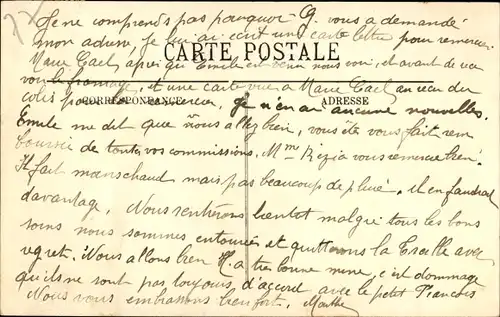 Je ne comprends pas pourquoi G. vous a demandé
mon adresse, je lui ai écrit une carte lettre pour remercier
CARTE POSTALE
Marie Gael après qu'Emile est venu nous voir, et avant de
le fromage, et une carte vue à Marie Gael au reçu du
colis pour la remercier, je n'en ai aucune nouvelles.
CORRESPONDANCE
ADRESSE
Emile me dit que vous allez bien, vous êtes vous fait rem
boursée de toutes vos commissions, Mme vous remercie bien.
Il fait moins chaud mais pas beaucoup de pluie, il en faudrait
davantage. Nous rentrerons bientôt malgré tous les bons
soins nous sommes entourées et quitterons la Treille avec
regret. Nous allons bien H. a très bonne mine, c'est dommage
qu'ils ne sont pas toujours d'accord avec le petit François
Nous vous embrassons bien fort, Marthe